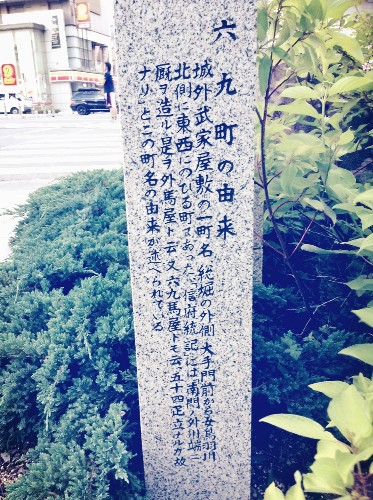 六九町の由来
城外武家屋敷の一町名 総堀の外側 大手門前から女鳥羽川
北側に東西にのびる町であった。「信府統記」には「南門ノ外川端ニ
厩ヲ造ル 是ヲ外馬屋ト云 又六九馬屋トモ云 五十四疋立ナルカ故
ナリ」とこの町名の由来が述べられている